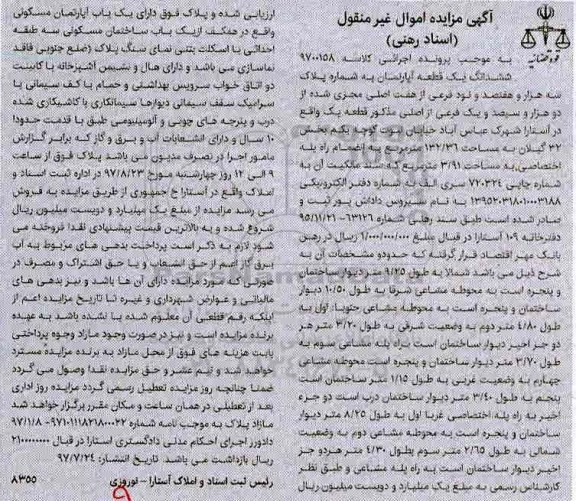 آگهی مزایده اموال غیر منقول
(اسناد رهنی)
قوه قضائیه
به موجب پرونده اجرائی کلاسه ۹۷۰۰۱۵۸
ششدانگ یک قطعه آپارتمان به شماره پلاک
سه هزار و هفتصد و نود فرعی از هفت اصلی مجزی شده از
دو هزار و سیصد و یک فرعی از اصلی مذکور قطعه یک واقع
در آستارا شهرک عباس آباد خیابان کوچه یکم بخش
۳۲ گیلان به مساحت ۱۳۲/۳۶ مترمربع به انضمام راه پله
اختصاصی به مساحت ۳/۹۱ مترمربع که سند مالکیت آن به
شماره چاپی ۷۲۰۳۲۴ سری الف به شماره دفتر الکترونیکی
۱۳۹۵۲۰۳۱۸۰۱۰۰۰۳۱۸۸ به نام سیروس داداش پور ثبت و
صادر شده است طبق سند رهنی شماره ۶۳۱۲۶-۹۵/۱۱/۲۱
دفترخانه ۱۰۹ آستارا در قبال مبلغ ۱/۰۰۰/۰۰۰/۰۰۰ ریال در رهن
بانک مهر اقتصاد قرار گرفته که حدود و مشخصات آن به
شرح ذیل می باشد شمالا به طول ۹/۲۵ متر دیوار ساختمان
و پنجره است به محوطه مشاعی شرقا به طول ۱۰/۵۰ دیوار
ساختمان و پنجره است به محوطه مشاعی جنوبا: اول به
طول ۴/۸۰ متر دوم به وضعیت شرقی به طول ۳/۲۰ متر هر
دو جز اخیر دیوار ساختمان است براه پله مشاعی سوم به
طول ۳/۷۰ متر دیوار ساختمان و پنجره است محوطه مشاعی
چهارم به وضعیت غربی به طول ۱/۱۵ متر ساختمان است
پنجم به طول ۳/۴۰ متر دیوار ساختمان درب است دو جزء
اخیر به راه پله اختصاصی غربا اول به طول ۸/۲۵ متر دیوار
ساختمان و پنجره است به محوطه مشاعی دوم به وضعیت
شمالی به طول ۲/۶۵ متر سوم بطول ۴/۳۰ متر هر دو جز
اخیر دیوار ساختمان است به راه پله مشاعی و طبق نظر
کارشناس رسمی به مبلغ یک میلیارد و دویست میلیون ریال
ارزیابی شده و پلاک فوق دارای یک باب آپارتمان مسکونی
واقع در همکف از یک باب ساختمان مسکونی سه طبقه
احداثی با اسکلت بتنی نمای سنگ پلاک (ضلع جنوبی فاقد
نماسازی می باشد و دارای هال و نشیمن آشپزخانه با کابینت
دو اتاق خواب سرویس بهداشتی و حمام با کف سیمانی یا
سرامیک سقف سیمانی دیوارها سیمانکاری یا کاشیکاری شده
درب و پنجره های چوبی و آلومینیومی طبق با قدمت حدودا
۱۰ سال و دارای انشعابات آب و برق و گاز که برابر گزارش
مامور اجرا در تصرف مدیون می باشد پلاک فوق از ساعت
۹ الی ۱۲ روز چهارشنبه مورخ ۹۷/۸/۲۳ در اداره ثبت اسناد و
املاک واقع در آستارا خ جمهوری از طریق مزایده به فروش
می رسد مزایده از مبلغ یک میلیارد و دویست میلیون ریال
شروع شده و به بالاترین قیمت پیشنهادی نقدا فروخته می
شود لازم به ذکر است پرداخت بدهی های مربوط به آب
برق گاز اعم از حق انشعاب و یا حق اشتراک و مصرف در
صورتی که مورد مزایده دارای آن ها باشد و نیز بدهی های
مالیاتی و عوارض شهرداری و غیره تا تاریخ مزایده اعم از
اینکه رقم قطعی آن معلوم شده یا نشده باشد به عهده
برنده مزایده است و نیز در صورت وجود مازاد وجوه پرداختی
بابت هزینه های فوق از محل مازاد به برنده مزایده مسترد
خواهد شد و نیم عشر و حق مزایده نقدا وصول می گردد
ضمنا چنانچه روز مزایده تعطیل رسمی گردد مزایده روز اداری
بعد از تعطیلی در همان ساعت و مکان مقرر برگزار خواهد شد
مازاد پلاک به موجب نامه شماره ۹۷۱۰۱۱۱۸۲۱۸۰۰۰۳۲-۹۷/۱/۸
دادورز اجرای احکام مدنی دادگستری آستارا در قبال ۲۱۰۰۰۰۰۰۰
ریال بازداشت می باشد. تاریخ انتشار: ۹۷/۷/۲۴
رئیس ثبت اسناد و املاک آستارا – نوروزی ۸۳۵۵